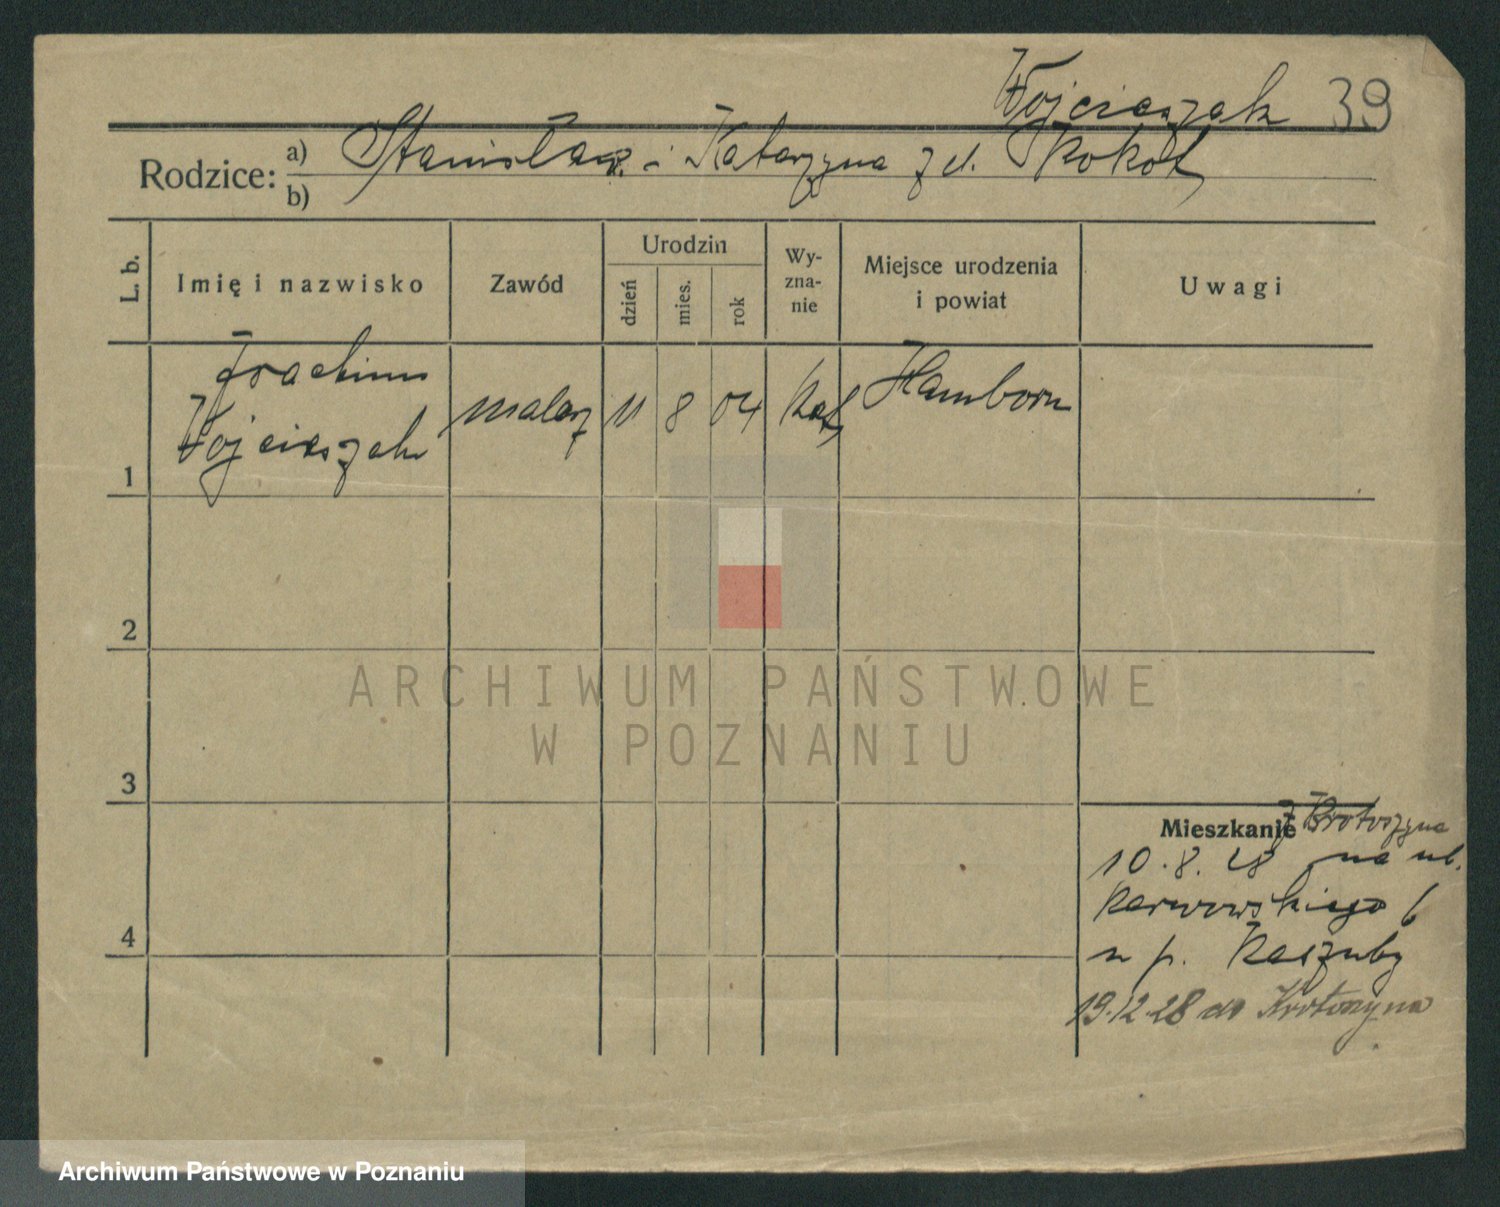 Wojcieszak 39
Rodzice: a) Stanisław i Katarzyna z d. Kokot
b)
L. b.
Imię i nazwisko
Zawód
Urodzin
dzień
mies.
rok
Wy-
zna-
nie
Miejsce urodzenia
i powiat
Uwagi
Joachim
Wojcieszak
malarz 11 8 04 Kat. Hamborn
1
2
ARCHIWUM PAŃSTWOWE
W POZNANIU
3
Mieszkanie z Krotoszyna
10.8.28 na ul.
Karwowskiego 6
u p. Kaszuby
4
19.12.28 do Krotoszyna
Archiwum Państwowe w Poznaniu